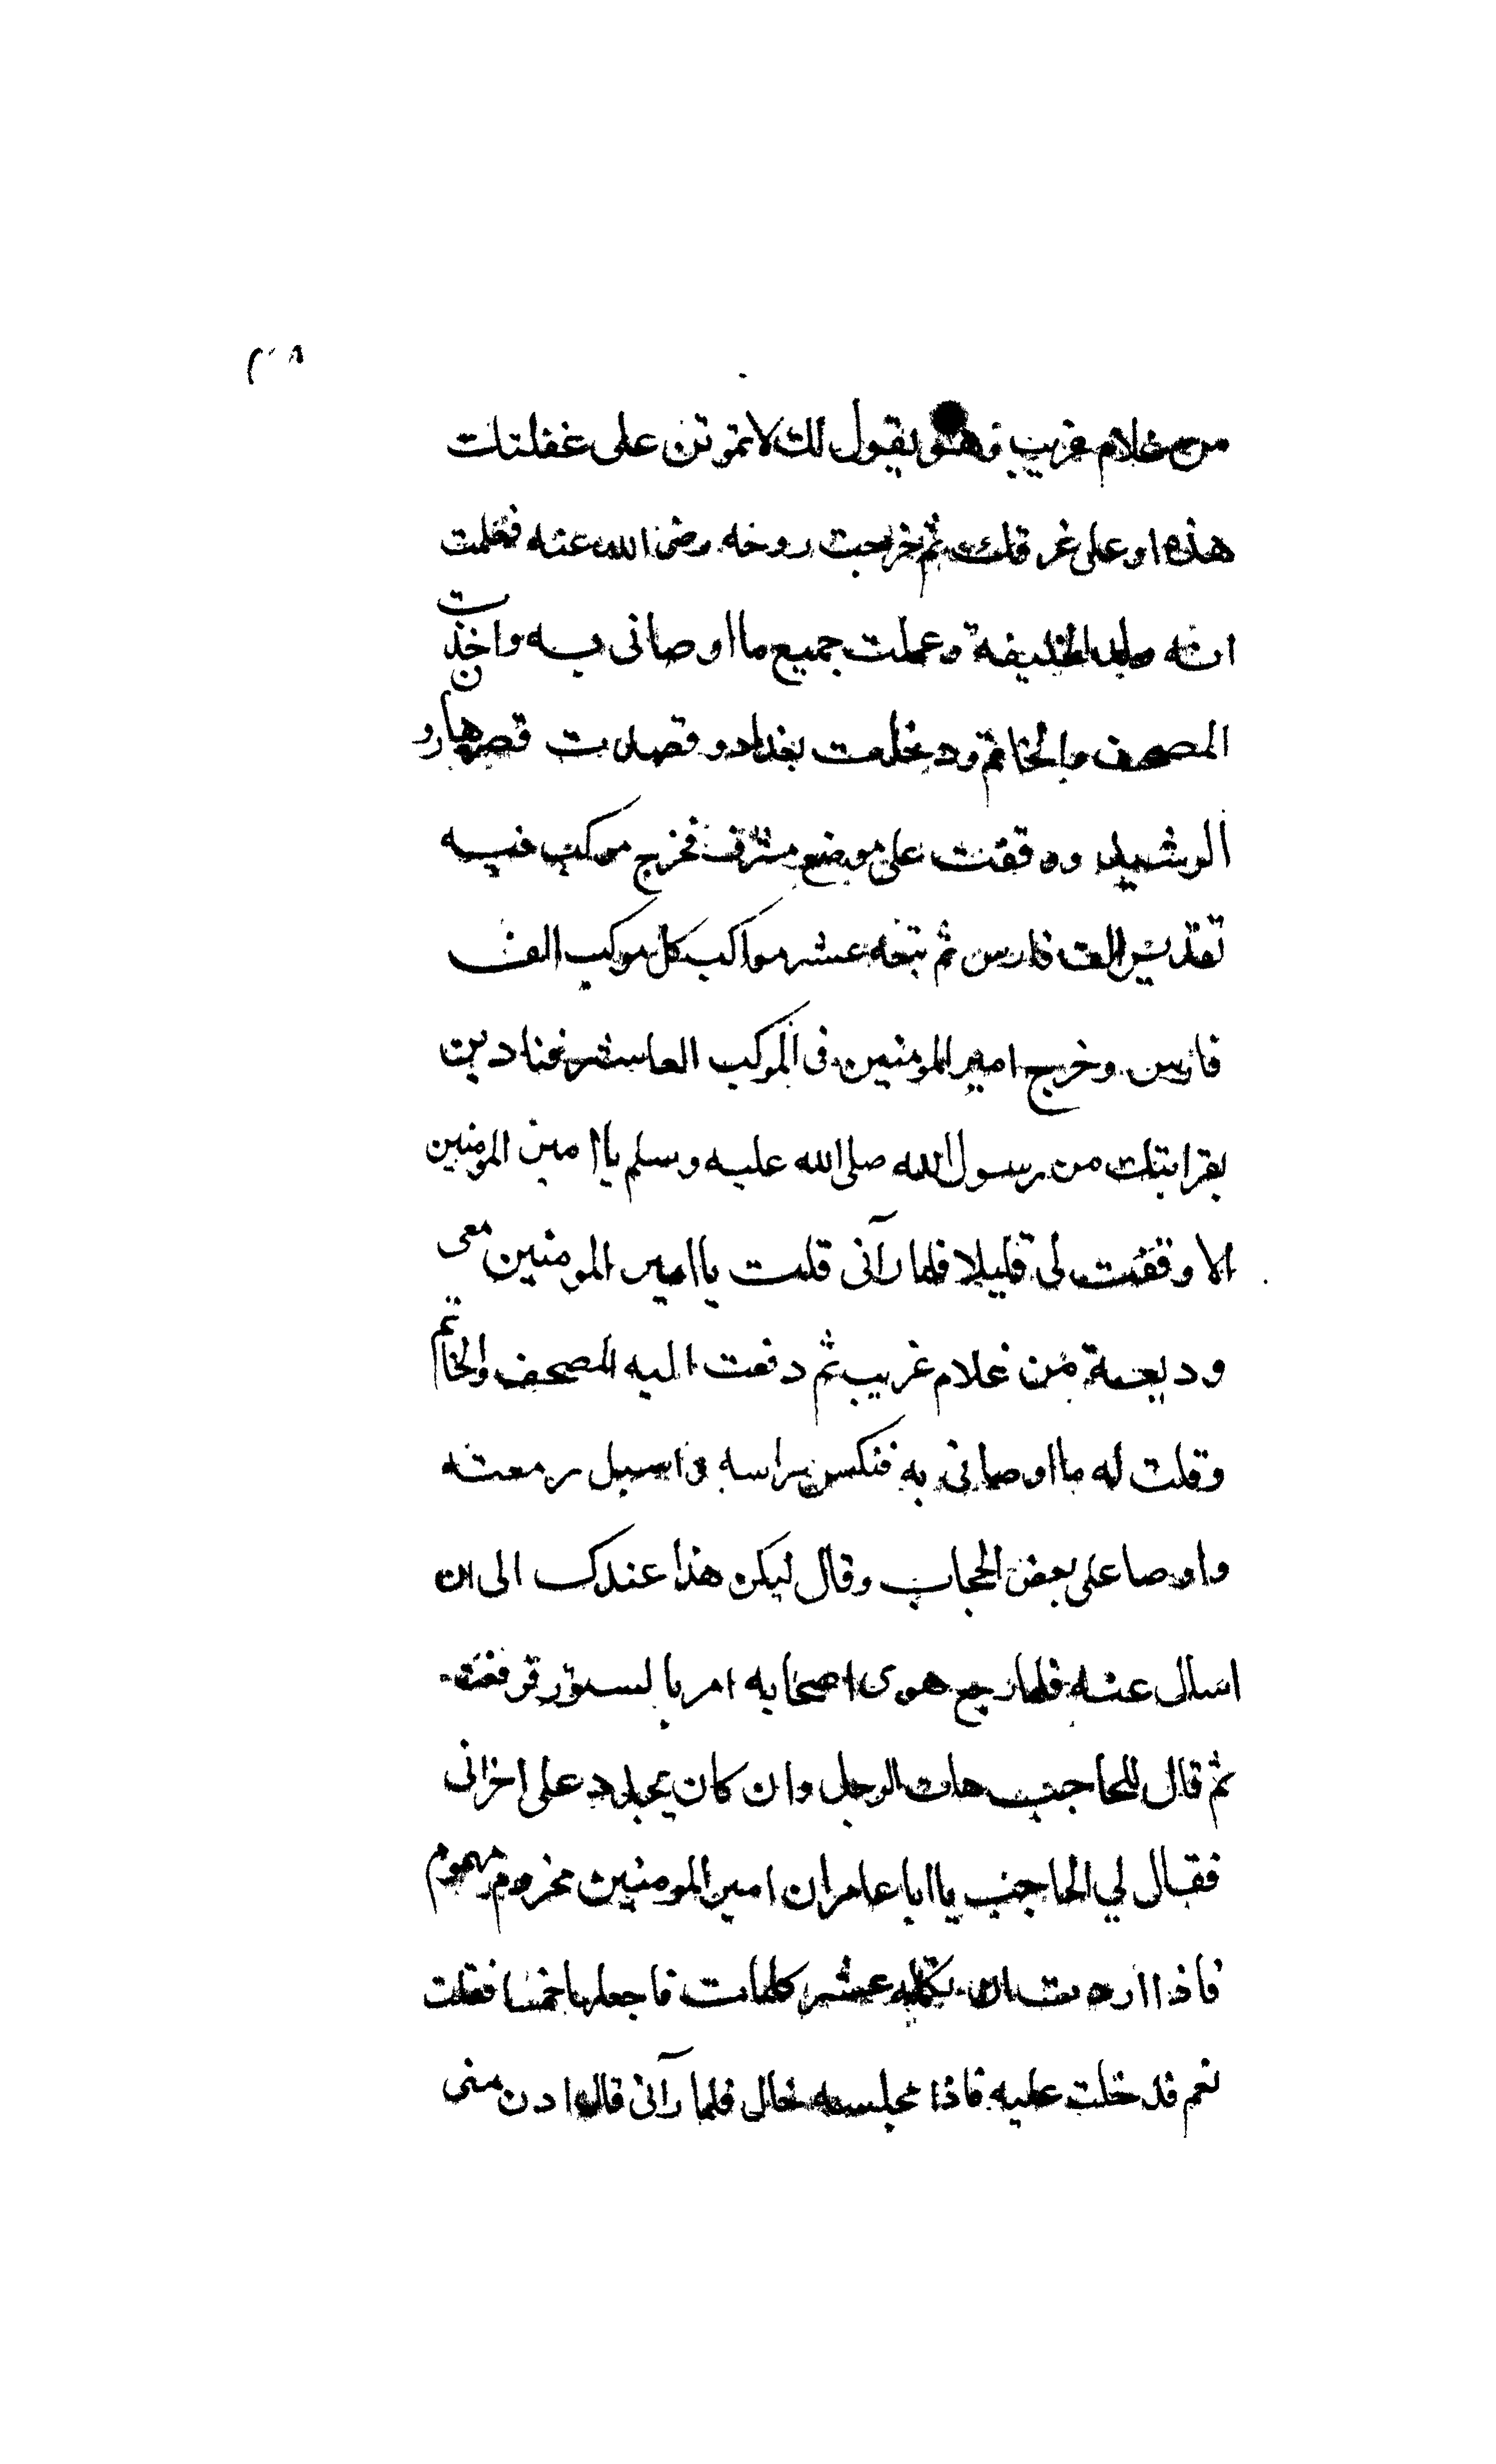 من غلام غريب وهو يقول لك لا تموتن على غفلتك
هذه او على غرقك ثم خرجت روحه رضى الله عنه فعلمت
انه ولد الخليفة وعملت جميع ما اوصانى به واخذت
المصحف والخاتم ودخلت بغداد وقصدت قصر هارون
الرشيد ووقفت على موضع مشرف فخرج موكب فيه
تقدير الف فارس ثم تبعه عشر مواكب كل موكب الف
فارس وخرج امير المومنين فى الموكب العاشر فنادين
بقرابتك من رسول الله صلى الله عليه وسلم يا امير المومنين
الا وقفت لى قليلا فلما رآنى قلت يا امير المومنين معى
وديعة من غلام غريب ثم دفعت اليه المصحف والخاتم
وقلت له ما اوصانى به فنكس راسه واسبل دمعته
واوصا على بعض الحجاب وقال ليكن هذا عندك الى ان
اسال عنه فلما رجع هو واصحابه امر بالستور فرفعت
ثم قال للحاجب هات الرجل وان كان يجدد على احزانى
فقال لي الحاجب يا ابا عامر ان امير المومنين محزوم مهموم
فاذا اردت ان تكلمه عشر كلمات فاجعلها خمسا فقلت
نعم فدخلت عليه فاذا مجلسه خال فلما رآنى قال ادن منى